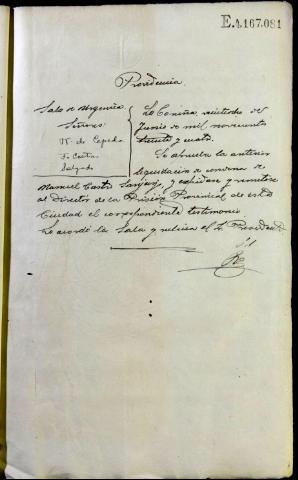 E.4.167.081
Providencia
Sala de Urgencia
Señores
V. de Cepeda
F. Castro
Salgado
La Coruña, veintiocho de
Junio de mil novecientos
treinta y cuatro.
Se aprueba la anterior
liquidación de condena de
Manuel Castro Sanjurjo, y expídase y remítase
al Director de la Prisión Provincial de esta
Ciudad el correspondiente testimonio.
Lo acordó la Sala y rubrica el Sr. Presidente